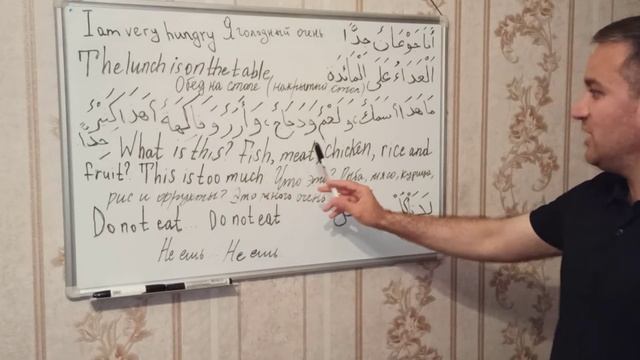 I am very hungry Я голодный очень أَنَا جَوْعَانٌ جِدًّا
The lunch is on the table الْغَدَاءُ عَلَى الْمَائِدَةِ
Обед на столе (накрытно стол)
مَا هَذَا أَسَمَكٌ، وَلَحْمٌ وَدَجَاجٌ، وَأَرُزٌّ وَفَاكِهَةٌ أَهَذَا كَثِيرٌ
جِدًّا What is this? Fish, meat, chicken, rice and
fruit? This is too much Что это? Рыба, мясо, курица,
рис и фрукты? Это много очень
Do not eat... Do not eat لَا تَأْكُلْ
Не ешь... Не ешь